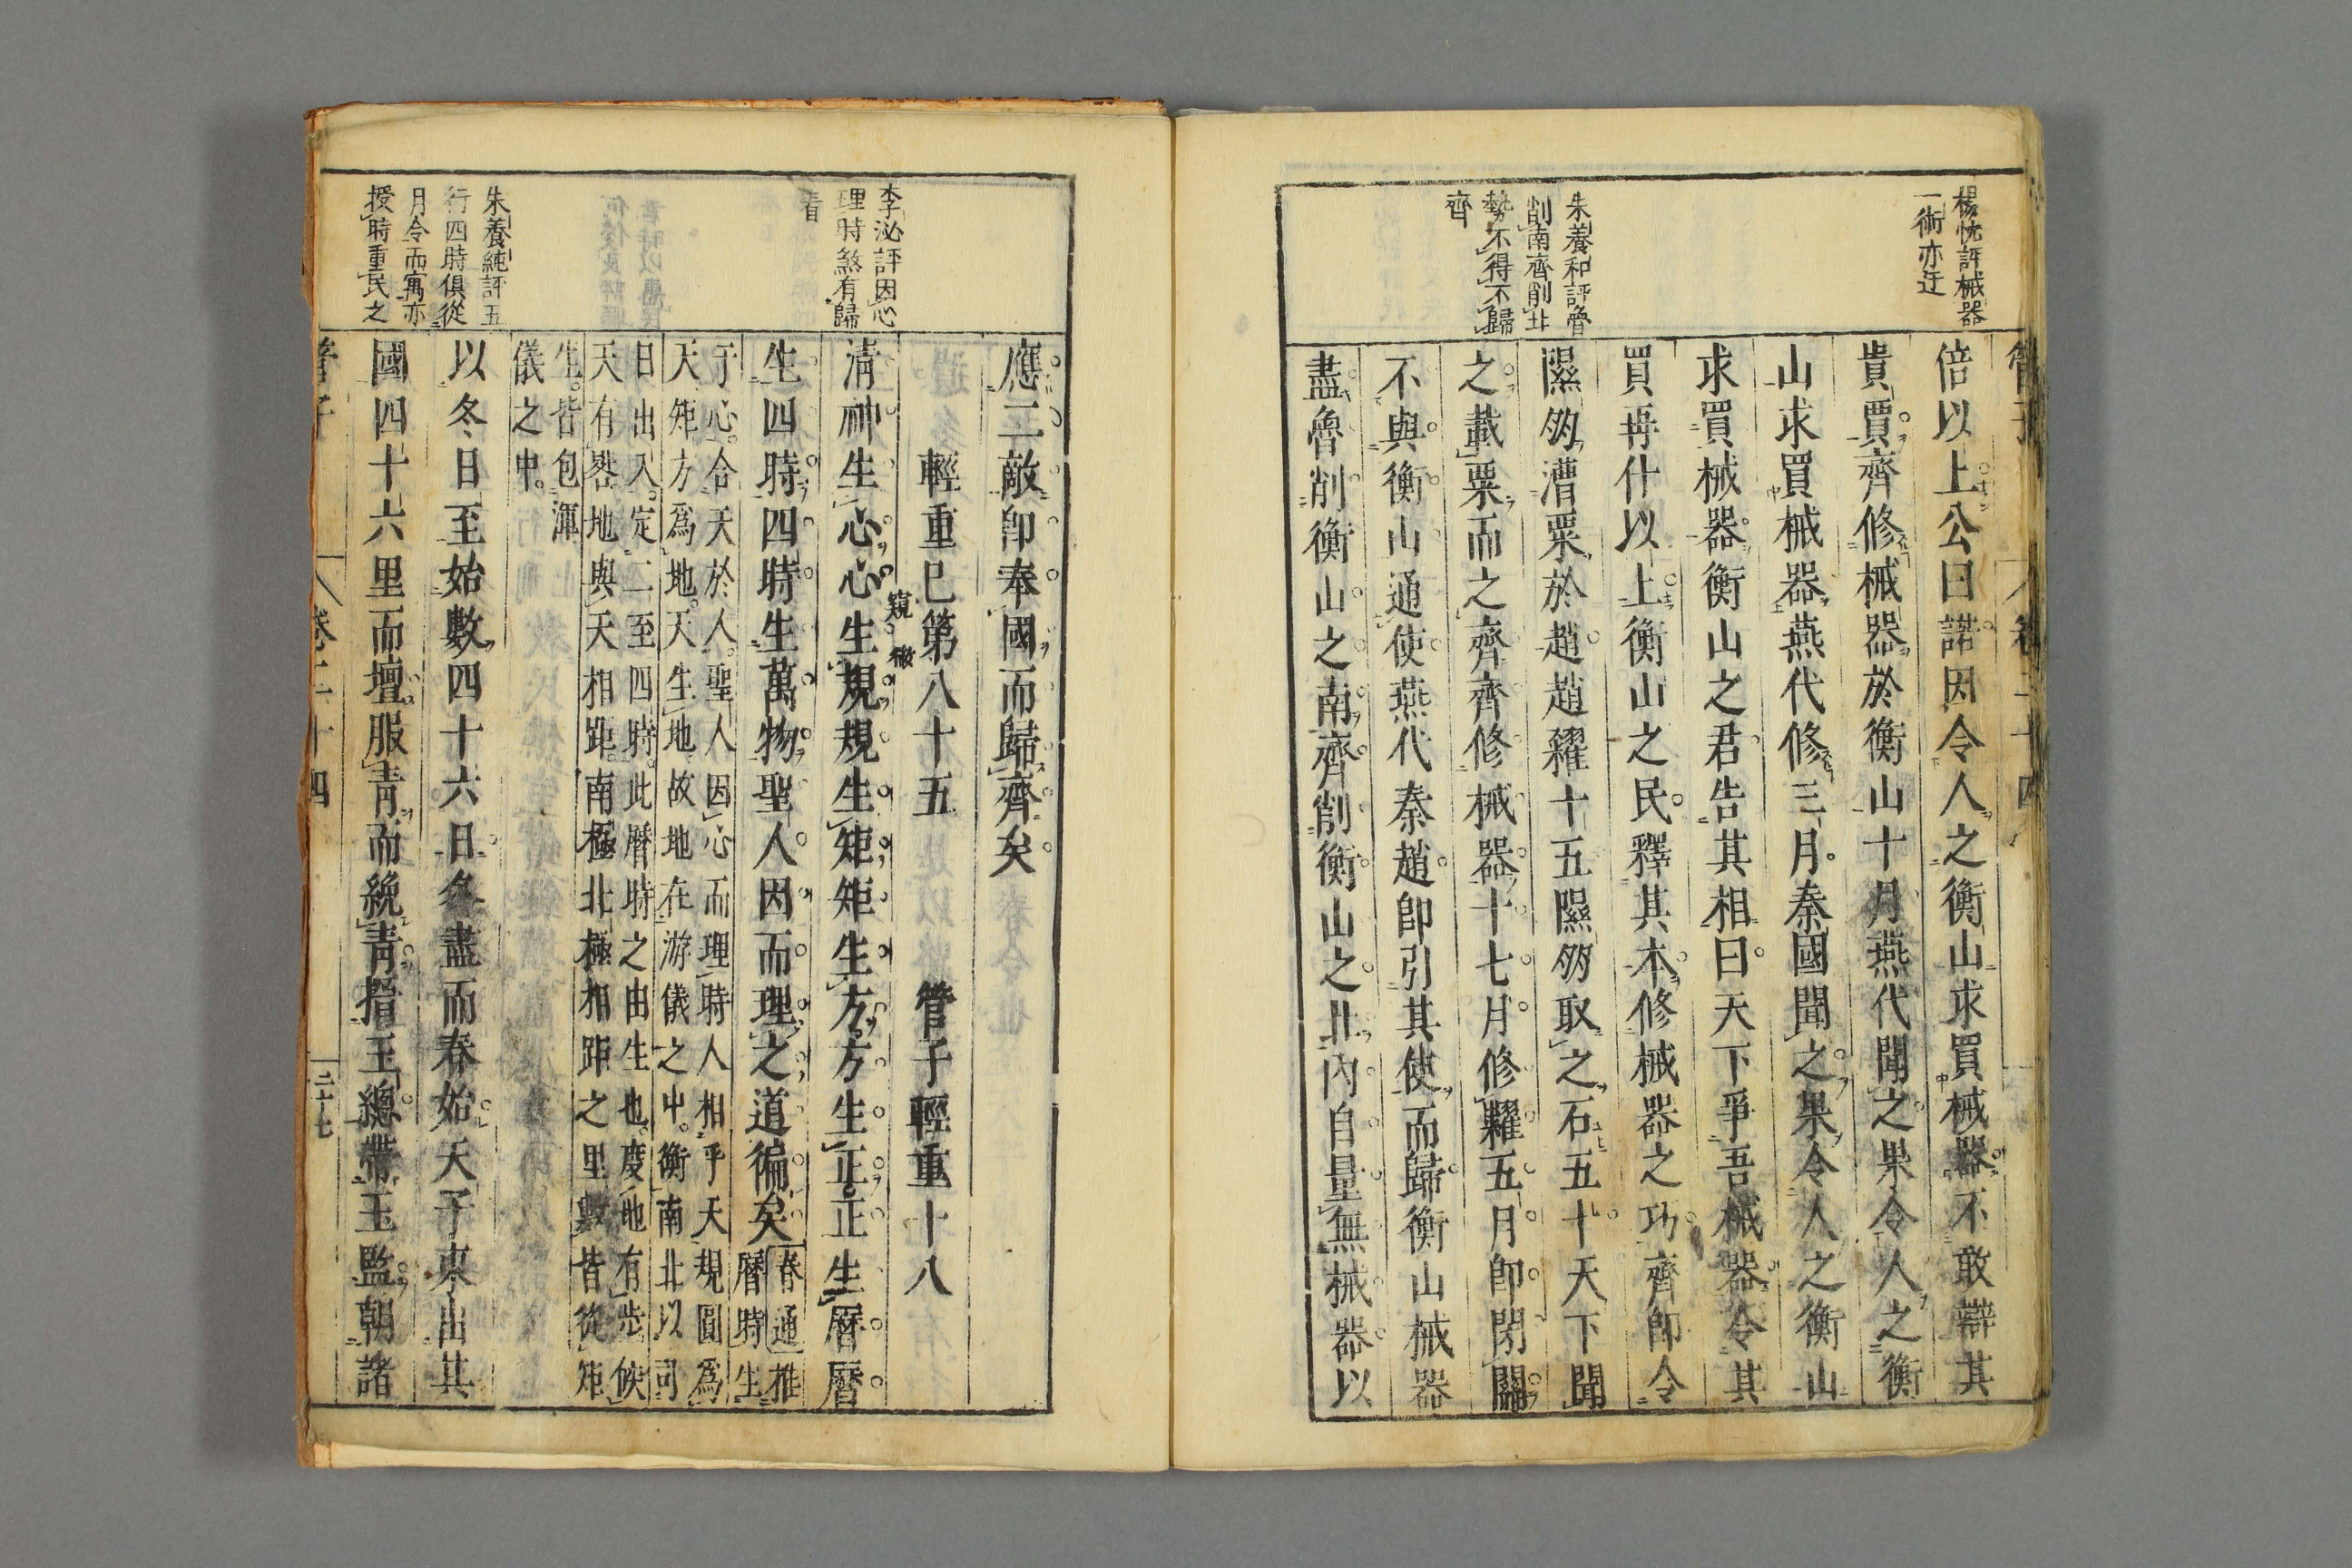 楊忱評械器
一術亦迂
朱養和評魯
削南齊削北
勢不得不歸
齊
管子　卷二十四
倍以上公曰諾因令人之衡山求買械器不敢辯其
貴賈齊修械器於衡山十月燕代聞之果令人之衡
山求買械器燕代修三月秦國聞之果令人之衡山
求買械器衡山之君告其相曰天下爭吾械器令其
買再什以上衡山之民釋其本修械器之功齊卽令
隰朋漕粟於趙趙糴十五隰朋取之石五十天下聞
之載粟而之齊齊修械器十七月修糶五月卽閉關
不與衡山通使燕代秦趙卽引其使而歸衡山械器
盡魯削衡山之南齊削衡山之北內自量無械器以
李泌評因心
理時煞有歸
着
朱養純評五
行四時俱從
月令而寓亦
授時重民之
應二敵卽奉國而歸齊矣
輕重巳第八十五　管子輕重十八
窺微
淸神生心心生規規生矩矩生方方生正正生曆曆
生四時四時生萬物聖人因而理之道徧矣
春通推
曆時生
于心合天於人聖人因心而理時人相乎天規圓爲
天矩方爲地天生地故地在游儀之中衡南北以司
日出入定二至四時此曆時之由生也度地有步候
天有晷地與天相距南極北極相距之里數皆從矩
生皆包渾
儀之中
以冬日至始數四十六日冬盡而春始天子東出其
國四十六里而壇服靑而絻靑搢玉總帶玉監朝諸
管子　卷二十四　三十七